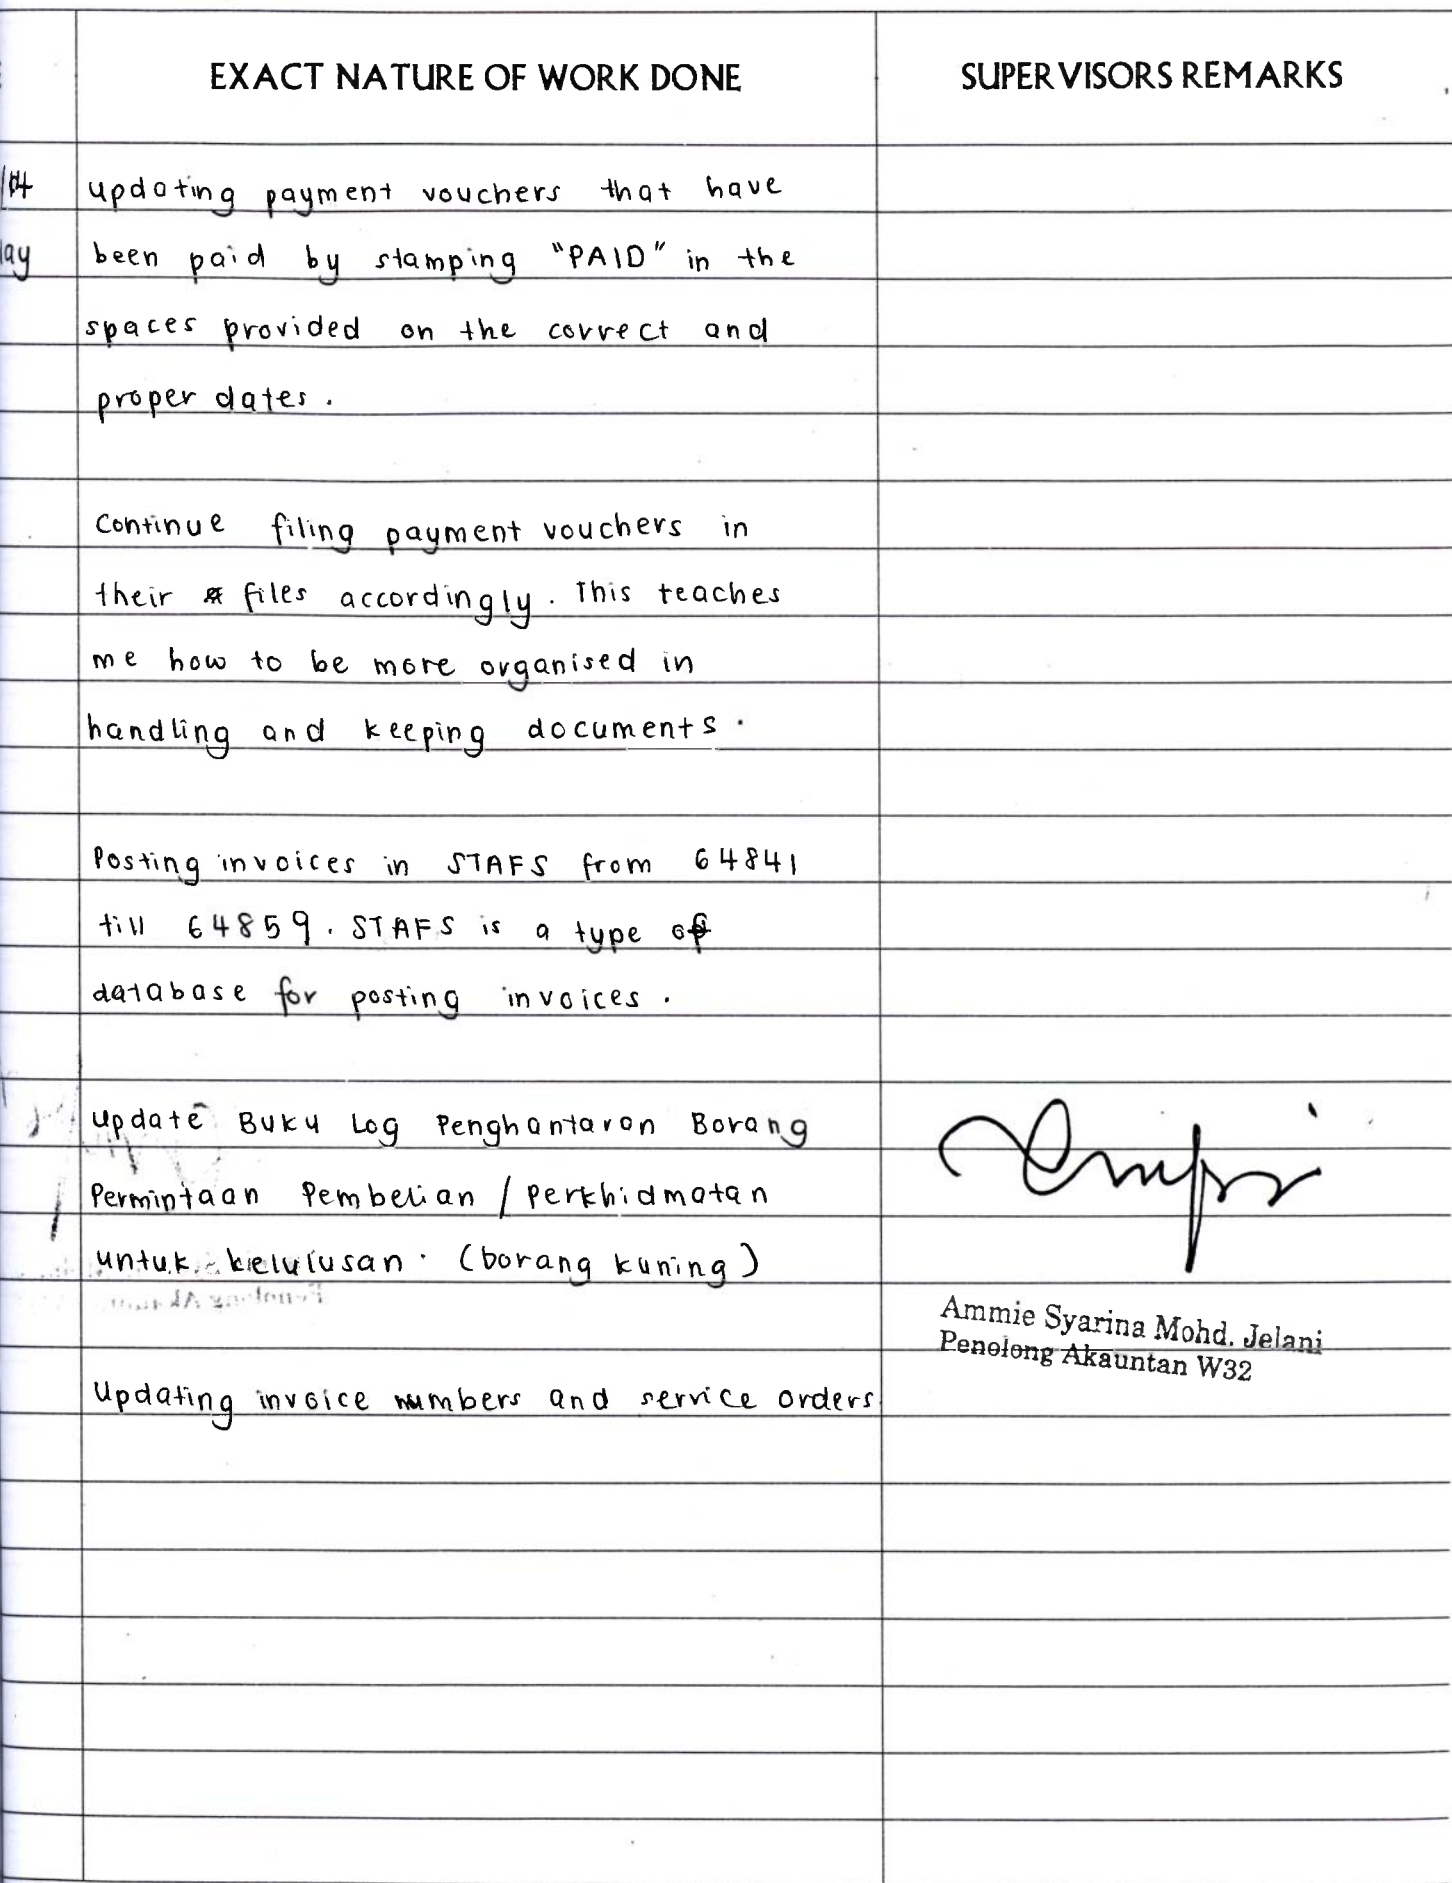 EXACT NATURE OF WORK DONE
SUPERVISORS REMARKS
updating payment vouchers that have
lay been paid by stamping "PAID" in the
spaces provided on the correct and
proper dates.
Continue filing payment vouchers in
their files accordingly. This teaches
me how to be more organised in
handling and keeping documents.
Posting invoices in STAFS from 64841
till 64859. STAFS is a type of
database for posting invoices.
update Buku Log Penghantaran Borang
Permintaan Pembelian / Perkhidmatan
untuk kelulusan. (borang kuning)
Ammie Syarina Mohd. Jelani
Penolong Akauntan W32
Updating invoice numbers and service orders